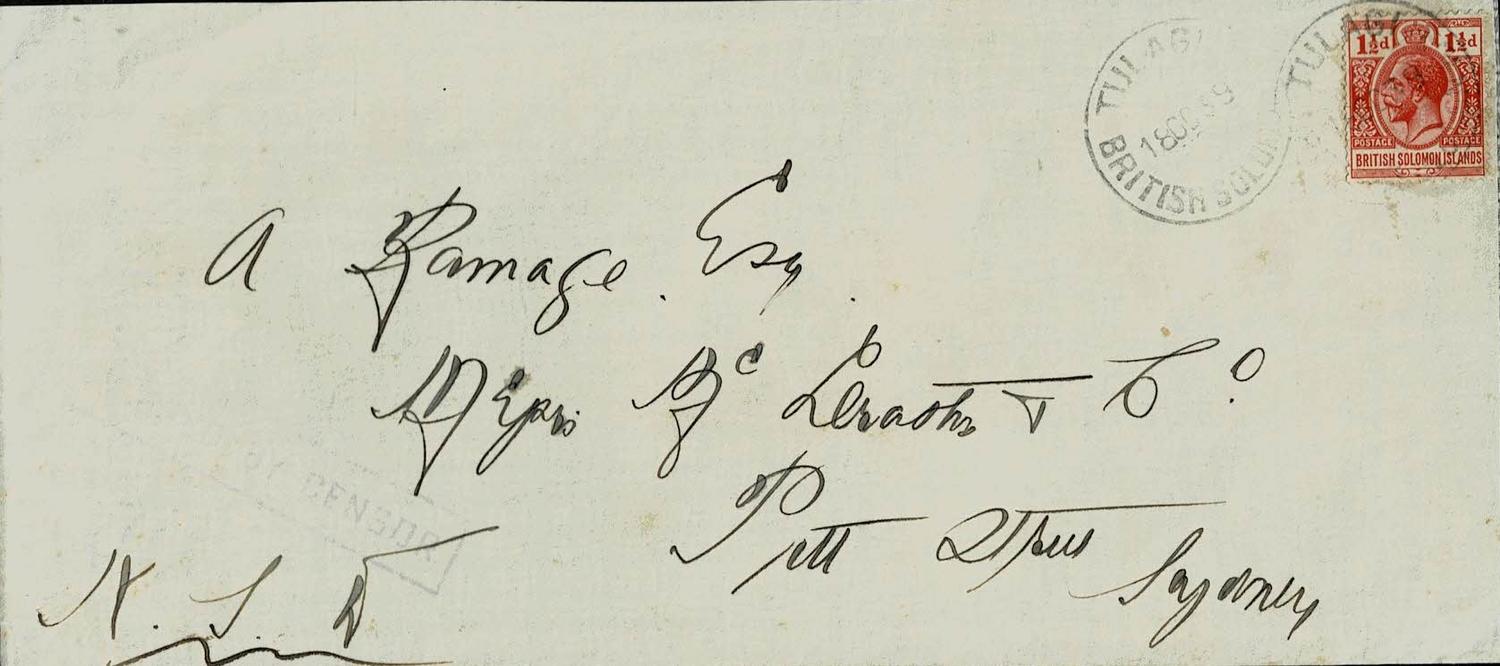 TULAGI
18 OC 39
BRITISH SOLOM
TULAGI
1½d 1½d
POSTAGE POSTAGE
BRITISH SOLOMON ISLANDS
A Ramage. Esq.
Messrs Mc & Co.
Pitt Street
Sydney
BY CENSOR
N. S. W